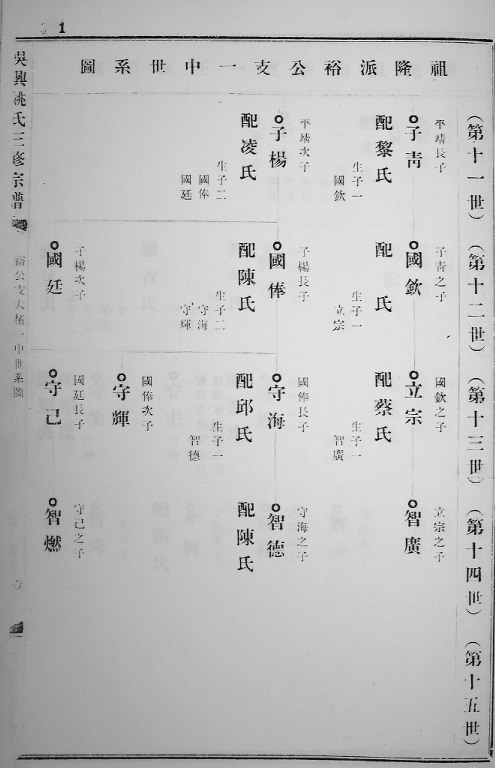 1
祖隆派裕公支一中世系圖
(第十一世)
(第十二世)
(第十三世)
(第十四世)
(第十五世)
平靖長子
子靑
配黎氏
生子一
國欽
平靖次子
子楊
配凌氏
生子二
國俸
國廷
子靑之子
國欽
配 氏
生子一
立宗
子楊長子
國俸
配陳氏
生子二
守海
守輝
子楊次子
國廷
國欽之子
立宗
配蔡氏
生子一
智廣
國俸長子
守海
配邱氏
生子一
智德
國俸次子
守輝
國廷長子
守己
立宗之子
智廣
守海之子
智德
配陳氏
守己之子
智燃
吳興姚氏三修宗譜
裕公支大柘一中世系圖